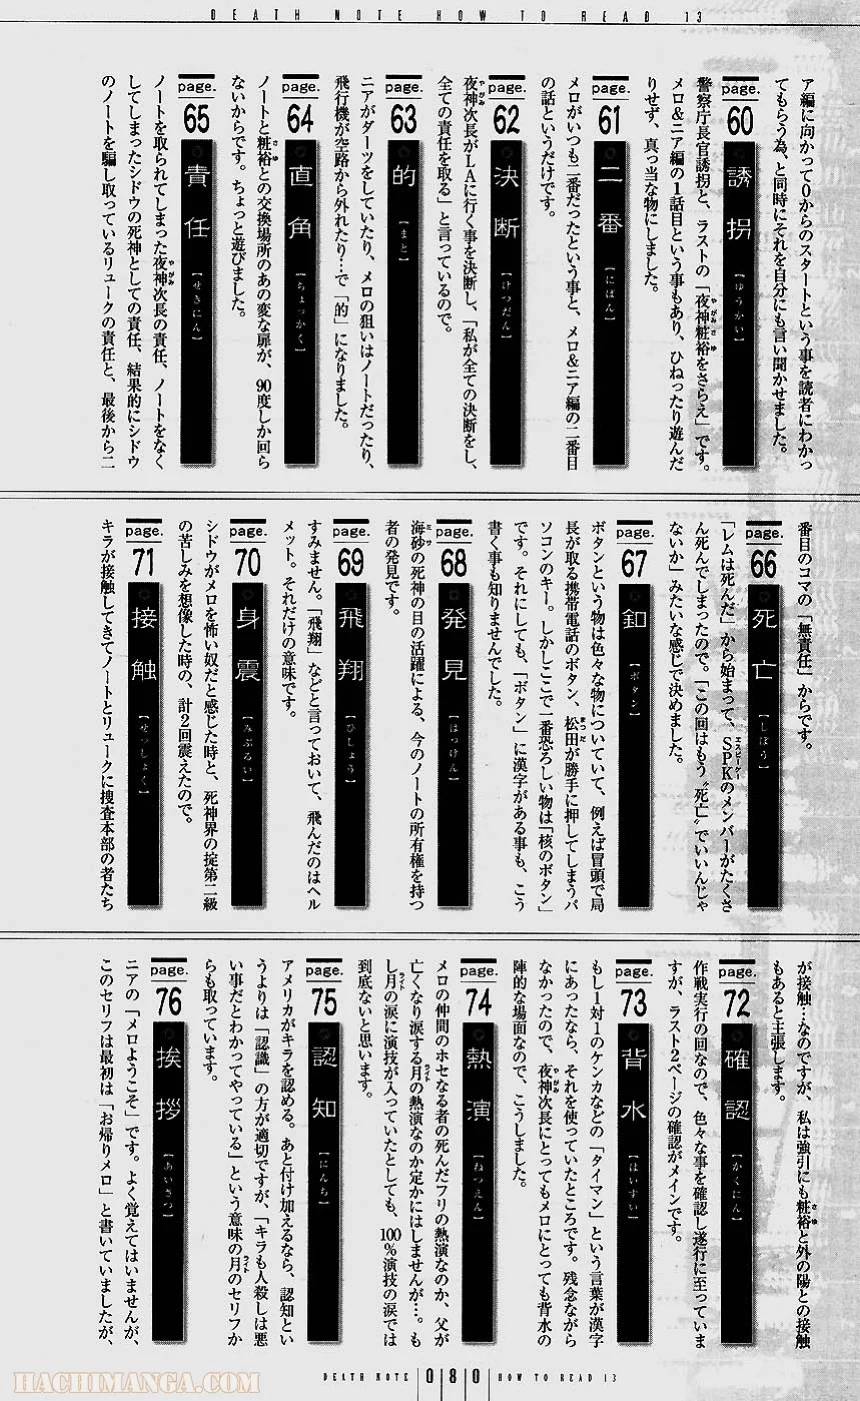 DEATH NOTE HOW TO READ 13
ア編に向かって0からのスタートという事を読者にわかっ
てもらう為、と同時にそれを自分にも言い聞かせました。
page. 60 誘拐【ゆうかい】
警察庁長官誘拐と、ラストの「夜神粧裕をさらえ」です。
メロ&ニア編の1話目という事もあり、ひねったり遊んだ
りせず、真っ当な物にしました。
page. 61 二番【にばん】
メロがいつも二番だったという事と、メロ&ニア編の二番目
の話というだけです。
page. 62 決断【けつだん】
夜神次長がLAに行く事を決断し、「私が全ての決断をし、
全ての責任を取る」と言っているので。
page. 63 的【まと】
ニアがダーツをしていたり、メロの狙いはノートだったり、
飛行機が空路から外れたり…で「的」になりました。
page. 64 直角【ちょっかく】
ノートと粧裕との交換場所のあの変な扉が、90度しか回ら
ないからです。ちょっと遊びました。
page. 65 責任【せきにん】
ノートを取られてしまった夜神次長の責任、ノートをなく
してしまったシドウの死神としての責任、結果的にシドウ
のノートを騙し取っているリュークの責任と、最後から二
番目のコマの「無責任」からです。
page. 66 死亡【しぼう】
「レムは死んだ」から始まって、SPKのメンバーがたくさ
ん死んでしまったので。「この回はもう〝死亡〟でいいんじゃ
ないか」みたいな感じで決めました。
page. 67 釦【ボタン】
ボタンという物は色々な物についていて、例えば冒頭で局
長が取る携帯電話のボタン、松田が勝手に押してしまうパ
ソコンのキー。しかしここで一番恐ろしい物は「核のボタン」
です。それにしても、「ボタン」に漢字がある事も、こう
書く事も知りませんでした。
page. 68 発見【はっけん】
海砂の死神の目の活躍による、今のノートの所有権を持つ
者の発見です。
page. 69 飛翔【ひしょう】
すみません。「飛翔」などと言っておいて、飛んだのはヘル
メット。それだけの意味です。
page. 70 身震【みぶるい】
シドウがメロを怖い奴だと感じた時と、死神界の掟第二級
の苦しみを想像した時の、計2回震えたので。
page. 71 接触【せっしょく】
キラが接触してきてノートとリュークに捜査本部の者たち
が接触…なのですが、私は強引にも粧裕と外の陽との接触
もあると主張します。
page. 72 確認【かくにん】
作戦実行の回なので、色々な事を確認し遂行に至っていま
すが、ラスト2ページの確認がメインです。
page. 73 背水【はいすい】
もし1対1のケンカなどの「タイマン」という言葉が漢字
にあったなら、それを使っていたところです。残念ながら
なかったので、夜神次長にとってもメロにとっても背水の
陣的な場面なので、こうしました。
page. 74 熱演【ねつえん】
メロの仲間のホセなる者の死んだフリの熱演なのか、父が
亡くなり涙する月の熱演なのか定かにはしませんが…。も
し月の涙に演技が入っていたとしても、100%演技の涙では
到底ないと思います。
page. 75 認知【にんち】
アメリカがキラを認める。あと付け加えるなら、認知とい
うよりは「認識」の方が適切ですが、「キラも人殺しは悪
い事だとわかってやっている」という意味の月のセリフか
らも取っています。
page. 76 挨拶【あいさつ】
ニアの「メロようこそ」です。よく覚えてはいませんが、
このセリフは最初は「お帰りメロ」と書いていましたが、
DEATH NOTE 080 HOW TO READ 13
HACHIMANGA.COM